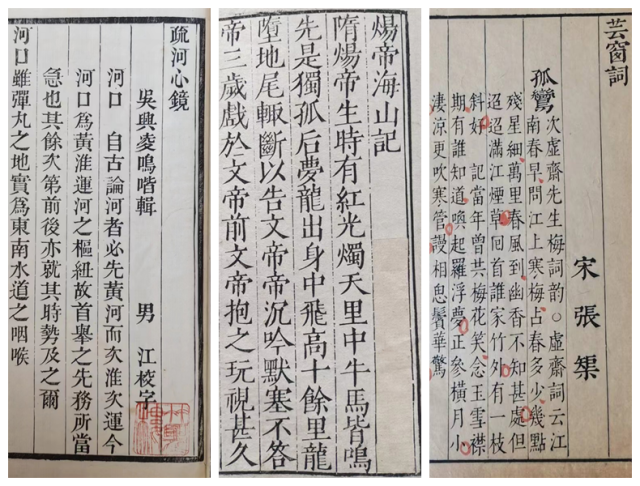 疏河心鏡
吳興凌鳴喈輯　男　江校字
河口　自古論河者必先黃河而次淮次運今
河口爲黃淮運河之樞紐故首舉之先務所當
急也其餘次第前後亦就其時勢及之爾
河口雖彈丸之地實爲東南水道之咽喉
煬帝海山記
隋煬帝生時有紅光燭天里中牛馬皆鳴
先是獨孤后夢龍出身中飛高十餘里龍
墮地尾輙斷以告文帝帝沉吟默塞不答
帝三歲戲於文帝前文帝抱之玩視甚久
芸窗詞
宋張榘
孤鸞
次虛齋先生梅詞韵○虛齋詞云江
南春早問江上寒梅占春多少幾點
殘星細萬里春風到幽香不知甚處但
迢迢滿江煙草回首誰家竹外有一枝
斜好　記當年曾共梅花笑念玉雪襟
期有誰知道喚起羅浮夢正參橫月小
淒涼更吹寒管謾相思鬢華驚